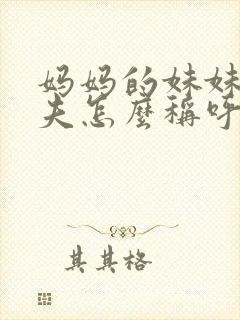 妈妈的妹妹
夫怎麼稱呼
其其格